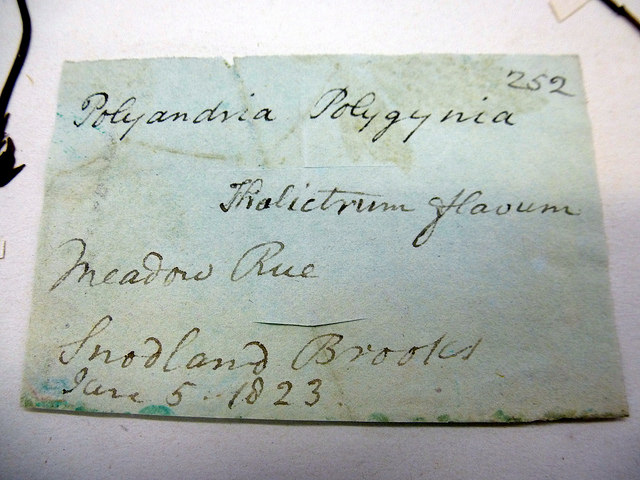 252
Polyandria Polygynia
Thalictrum flavum
Meadow Rue
Snodland Brooks
June 5 1823